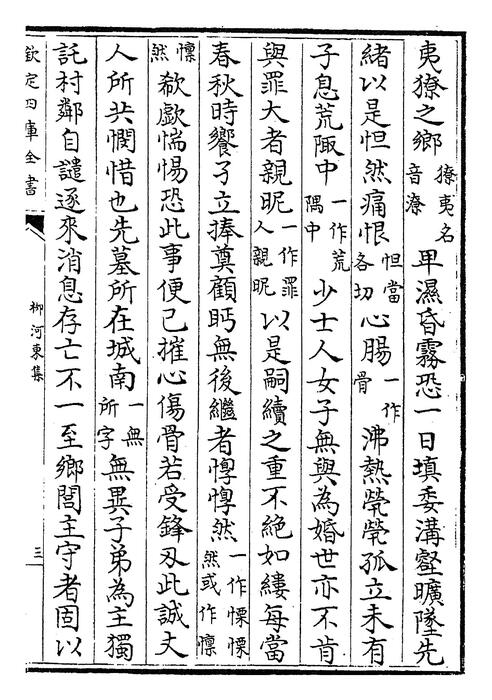 夷獠之鄉獠夷名音潦卑濕昏霧恐一日填委溝壑曠墜先
緒以是怛然痛恨怛當各切心腸一作骨沸熱煢煢孤立未有
子息荒陬中一作荒隅中少士人女子無與為婚世亦不肯
與罪大者親昵一作罪人親昵以是嗣續之重不絶如縷每當
春秋時饗孑立捧奠顧眄無後繼者惸惸然一作慄慄然或作懍
懍然欷歔惴惕恐此事便已摧心傷骨若受鋒刃此誠丈
人所共憫惜也先墓所在城南一無所字無異子弟為主獨
託村鄰自譴逐來消息存亡不一至鄉閭主守者固以
欽定四庫全書
柳河東集
三